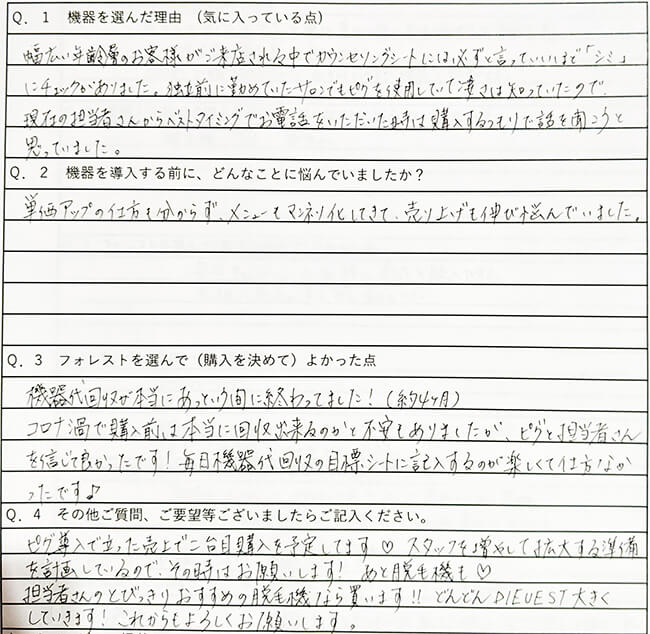 Q. 1 機器を選んだ理由 （気に入っている点）
幅広い年齢層のお客様がご来店される中でカウンセリングシートには必ずと言っていいほど「シミ」
にチェックがありました。独立前に勤めていたサロンでもピグを使用していて凄さは知っていたので、
現在の担当者さんからベストタイミングでお電話をいただいた時は購入するつもりで話を聞こうと
思っていました。
Q. 2 機器を導入する前に、どんなことに悩んでいましたか？
単価アップの仕方も分からず、メニューもマンネリ化してきて、売り上げも伸び悩んでいました。
Q. 3 フォレストを選んで（購入を決めて）よかった点
機器代回収が本当にあっという間に終わってました！（約4ヶ月）
コロナ渦で購入前は本当に回収出来るのかと不安もありましたが、ピグと担当者さん
を信じて良かったです！毎日機器代回収の目標シートに記入するのが楽しくて仕方なか
ったです♪
Q. 4 その他ご質問、ご要望等ございましたらご記入ください。
ピグ導入で立った売上で二台目購入を予定してます♡ スタッフを増やして拡大する準備
を計画しているので、その時はお願いします！ あと脱毛機も♡
担当者さんのとびっきりおすすめの脱毛機なら買います!! どんどん DIEUEST 大きく
していきます！これからもよろしくお願いします。